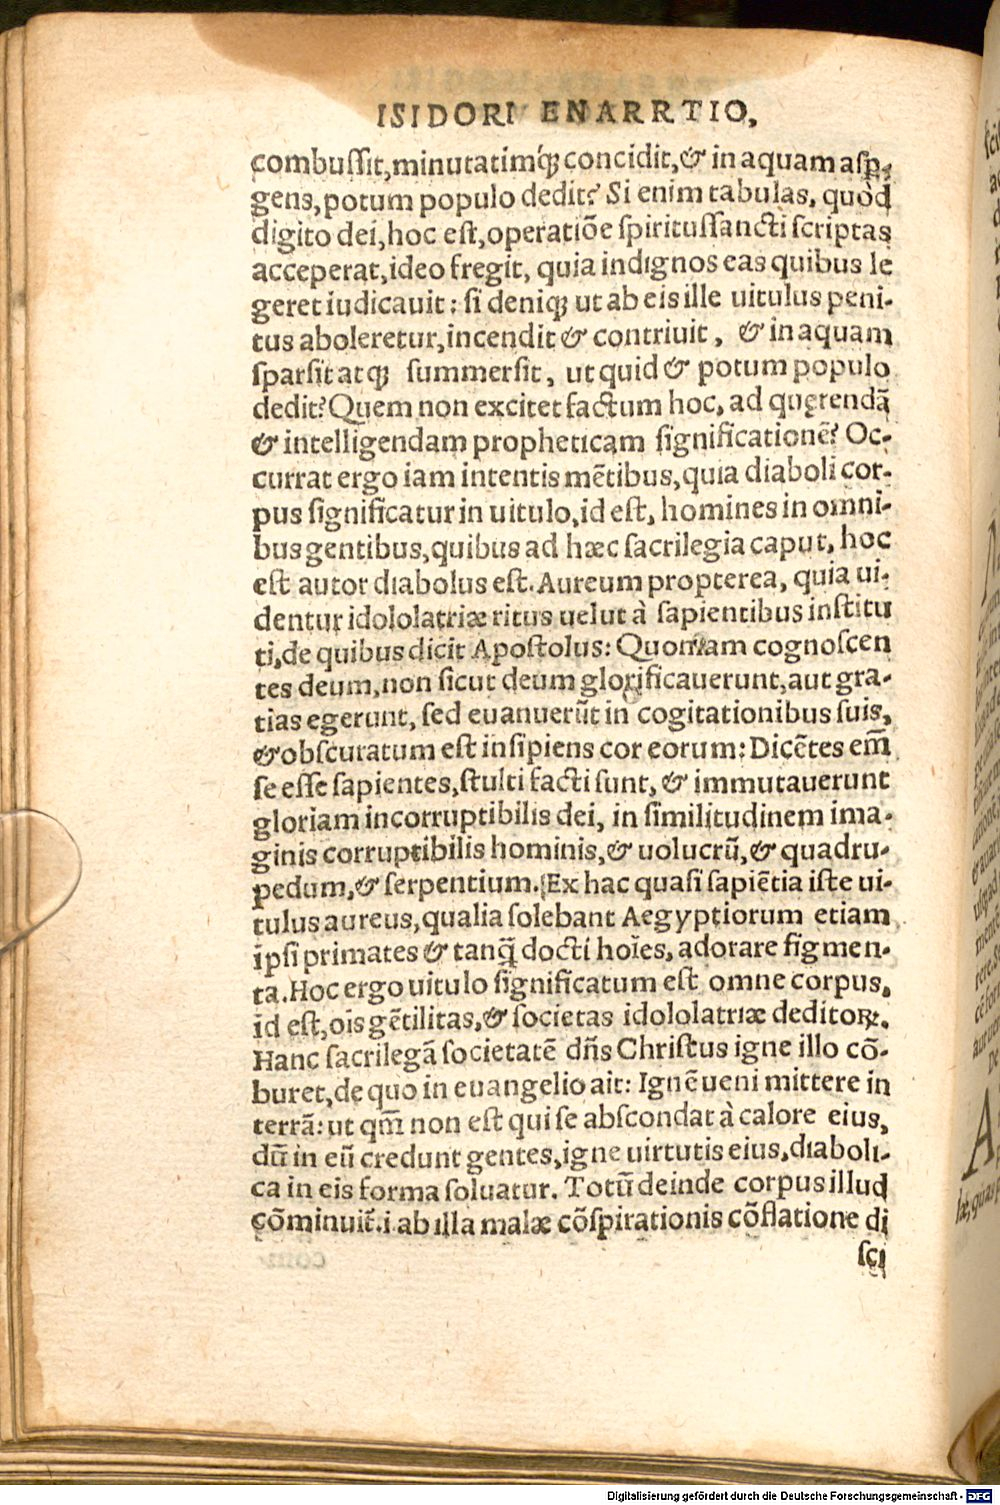 ISIDORI ENARRTIO,
combuſſit, minutatimq́ꝫ concidit, & in aquam aſp̱-
gens, potum populo dedit? Si enim tabulas, quòd
digito dei, hoc eſt, operatiõe ſpiritusſancti ſcriptas
acceperat, ideo fregit, quia indignos eas quibus le
geret iudicauit: ſi deniqꝫ ut ab eis ille uitulus peni-
tus aboleretur, incendit & contriuit, & in aquam
ſparſit atqꝫ ſummerſit, ut quid & potum populo
dedit? Quem non excitet factum hoc, ad quęrendã
& intelligendam propheticam ſignificationẽ? Oc-
currat ergo iam intentis mẽtibus, quia diaboli cor-
pus ſignificatur in uitulo, id eſt, homines in omni-
bus gentibus, quibus ad hæc ſacrilegia caput, hoc
eſt autor diabolus eſt. Aureum propterea, quia ui-
dentur idololatriæ ritus uelut à ſapientibus inſtitu
ti, de quibus dicit Apoſtolus: Quoniam cognoſcen
tes deum, non ſicut deum glorificauerunt, aut gra-
tias egerunt, ſed euanuerũt in cogitationibus ſuis,
& obſcuratum eſt inſipiens cor eorum: Dicẽtes em̃
ſe eſſe ſapientes, ſtulti facti ſunt, & immutauerunt
gloriam incorruptibilis dei, in ſimilitudinem ima-
ginis corruptibilis hominis, & uolucrũ, & quadru-
pedum, & ſerpentium. Ex hac quaſi ſapiẽtia iſte ui-
tulus aureus, qualia ſolebant Aegyptiorum etiam
ipſi primates & tanq̃ docti hoĩes, adorare figmen-
ta. Hoc ergo uitulo ſignificatum eſt omne corpus,
id eſt, ois gẽtilitas, & ſocietas idololatriæ deditoꝝ.
Hanc ſacrilegã ſocietatẽ dñs Chriſtus igne illo cõ-
buret, de quo in euangelio ait: Ignẽ ueni mittere in
terrã: ut qm̃ non eſt qui ſe abſcondat à calore eius,
dũ in eũ credunt gentes, igne uirtutis eius, diaboli-
ca in eis forma ſoluatur. Totũ deinde corpus illud
cõminuit̃. i. ab illa malæ cõſpirationis cõflatione di
ſci
Digitalisierung gefördert durch die Deutsche Forschungsgemeinschaft - DFG